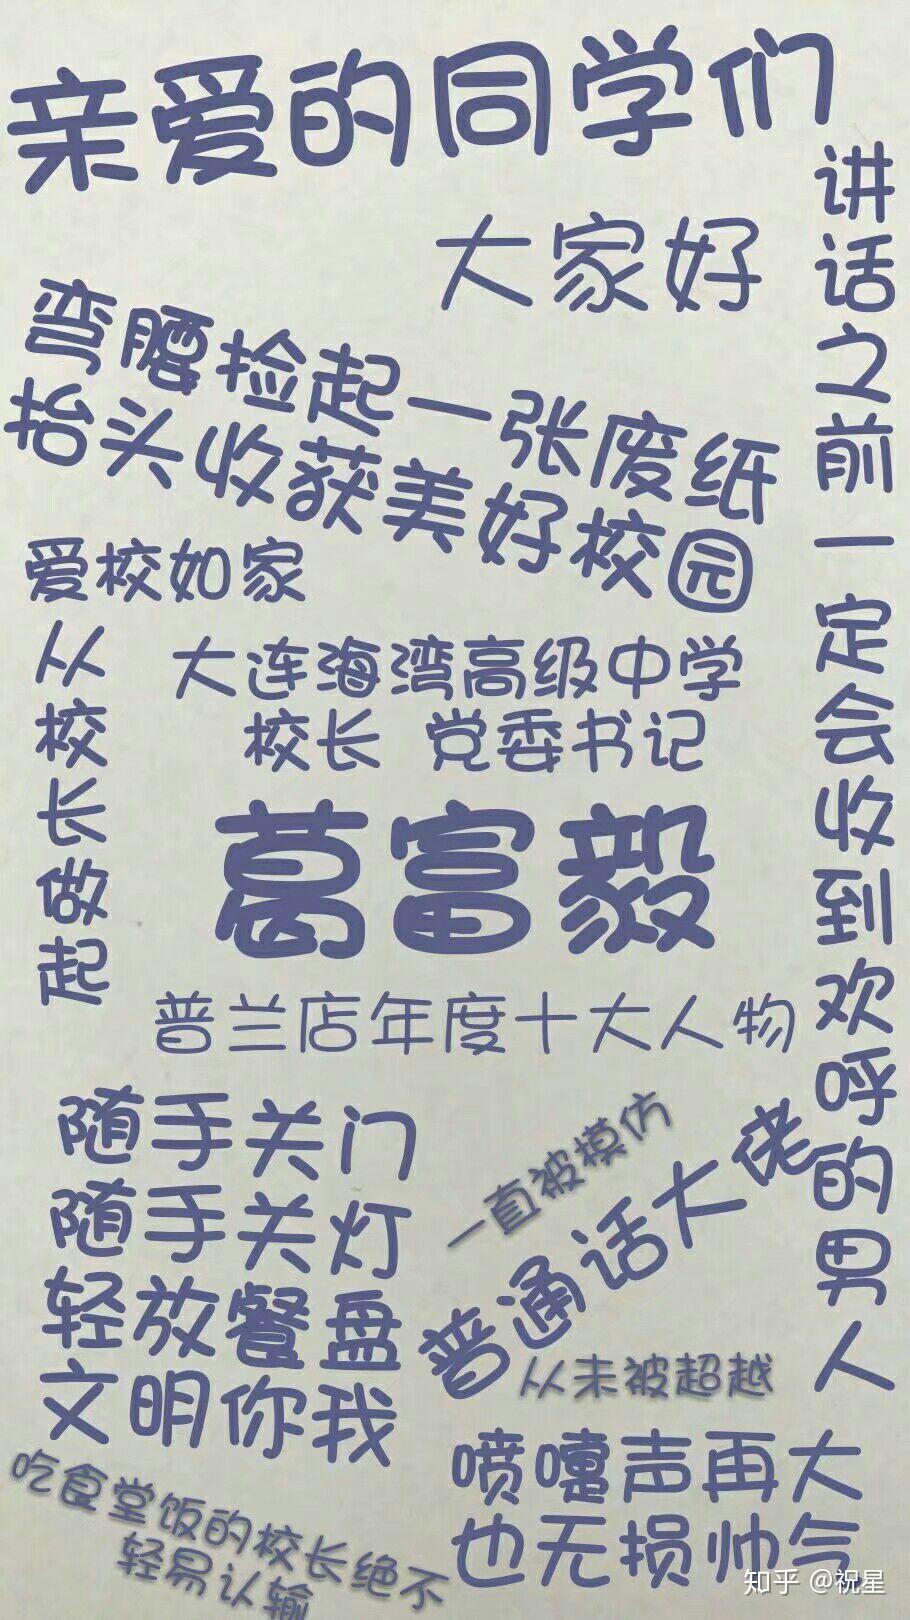 亲爱的同学们
大家好
讲话之前一定会收到欢呼的男人
弯腰捡起一张废纸
抬头收获美好校园
爱校如家
从校长做起
大连海湾高级中学
校长 党委书记
葛富毅
普兰店年度十大人物
随手关门
随手关灯
轻放餐盘
文明你我
一直被模仿
普通话大佬
从未被超越
喷嚏声再大
也无损帅气
吃食堂饭的校长绝不
轻易认输
知乎 @祝星